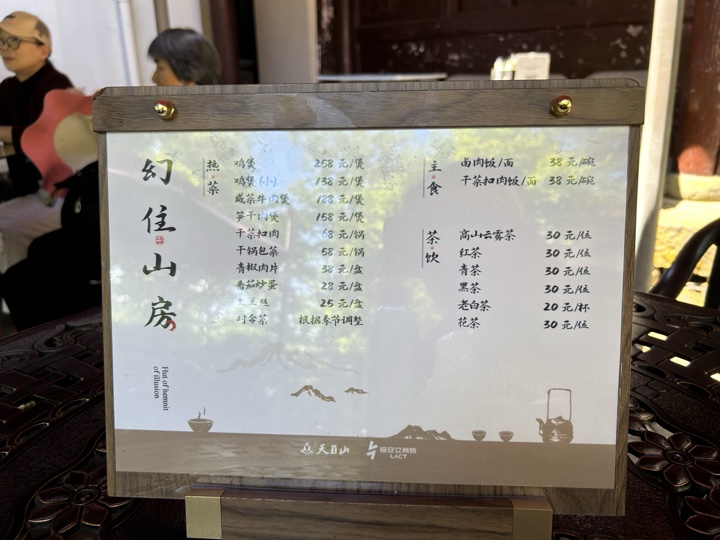 幻住山房
Hut of hemnit
of illusion
热·菜
鸡煲 258 元/煲
鸡煲(小) 138 元/煲
咸菜牛肉煲 188 元/煲
笋干肉煲 158 元/煲
干菜扣肉 68 元/锅
干锅包菜 58 元/锅
青椒肉片 38 元/盆
番茄炒蛋 28 元/盆
土豆丝 25 元/盆
时令菜 根据季节调整
主·食
卤肉饭/面 38 元/碗
干菜扣肉饭/面 38 元/碗
茶·饮
高山云雾茶 30 元/位
红茶 30 元/位
青茶 30 元/位
黑茶 30 元/位
老白茶 20 元/杯
花茶 30 元/位
天目山
临安文商旅
LACT